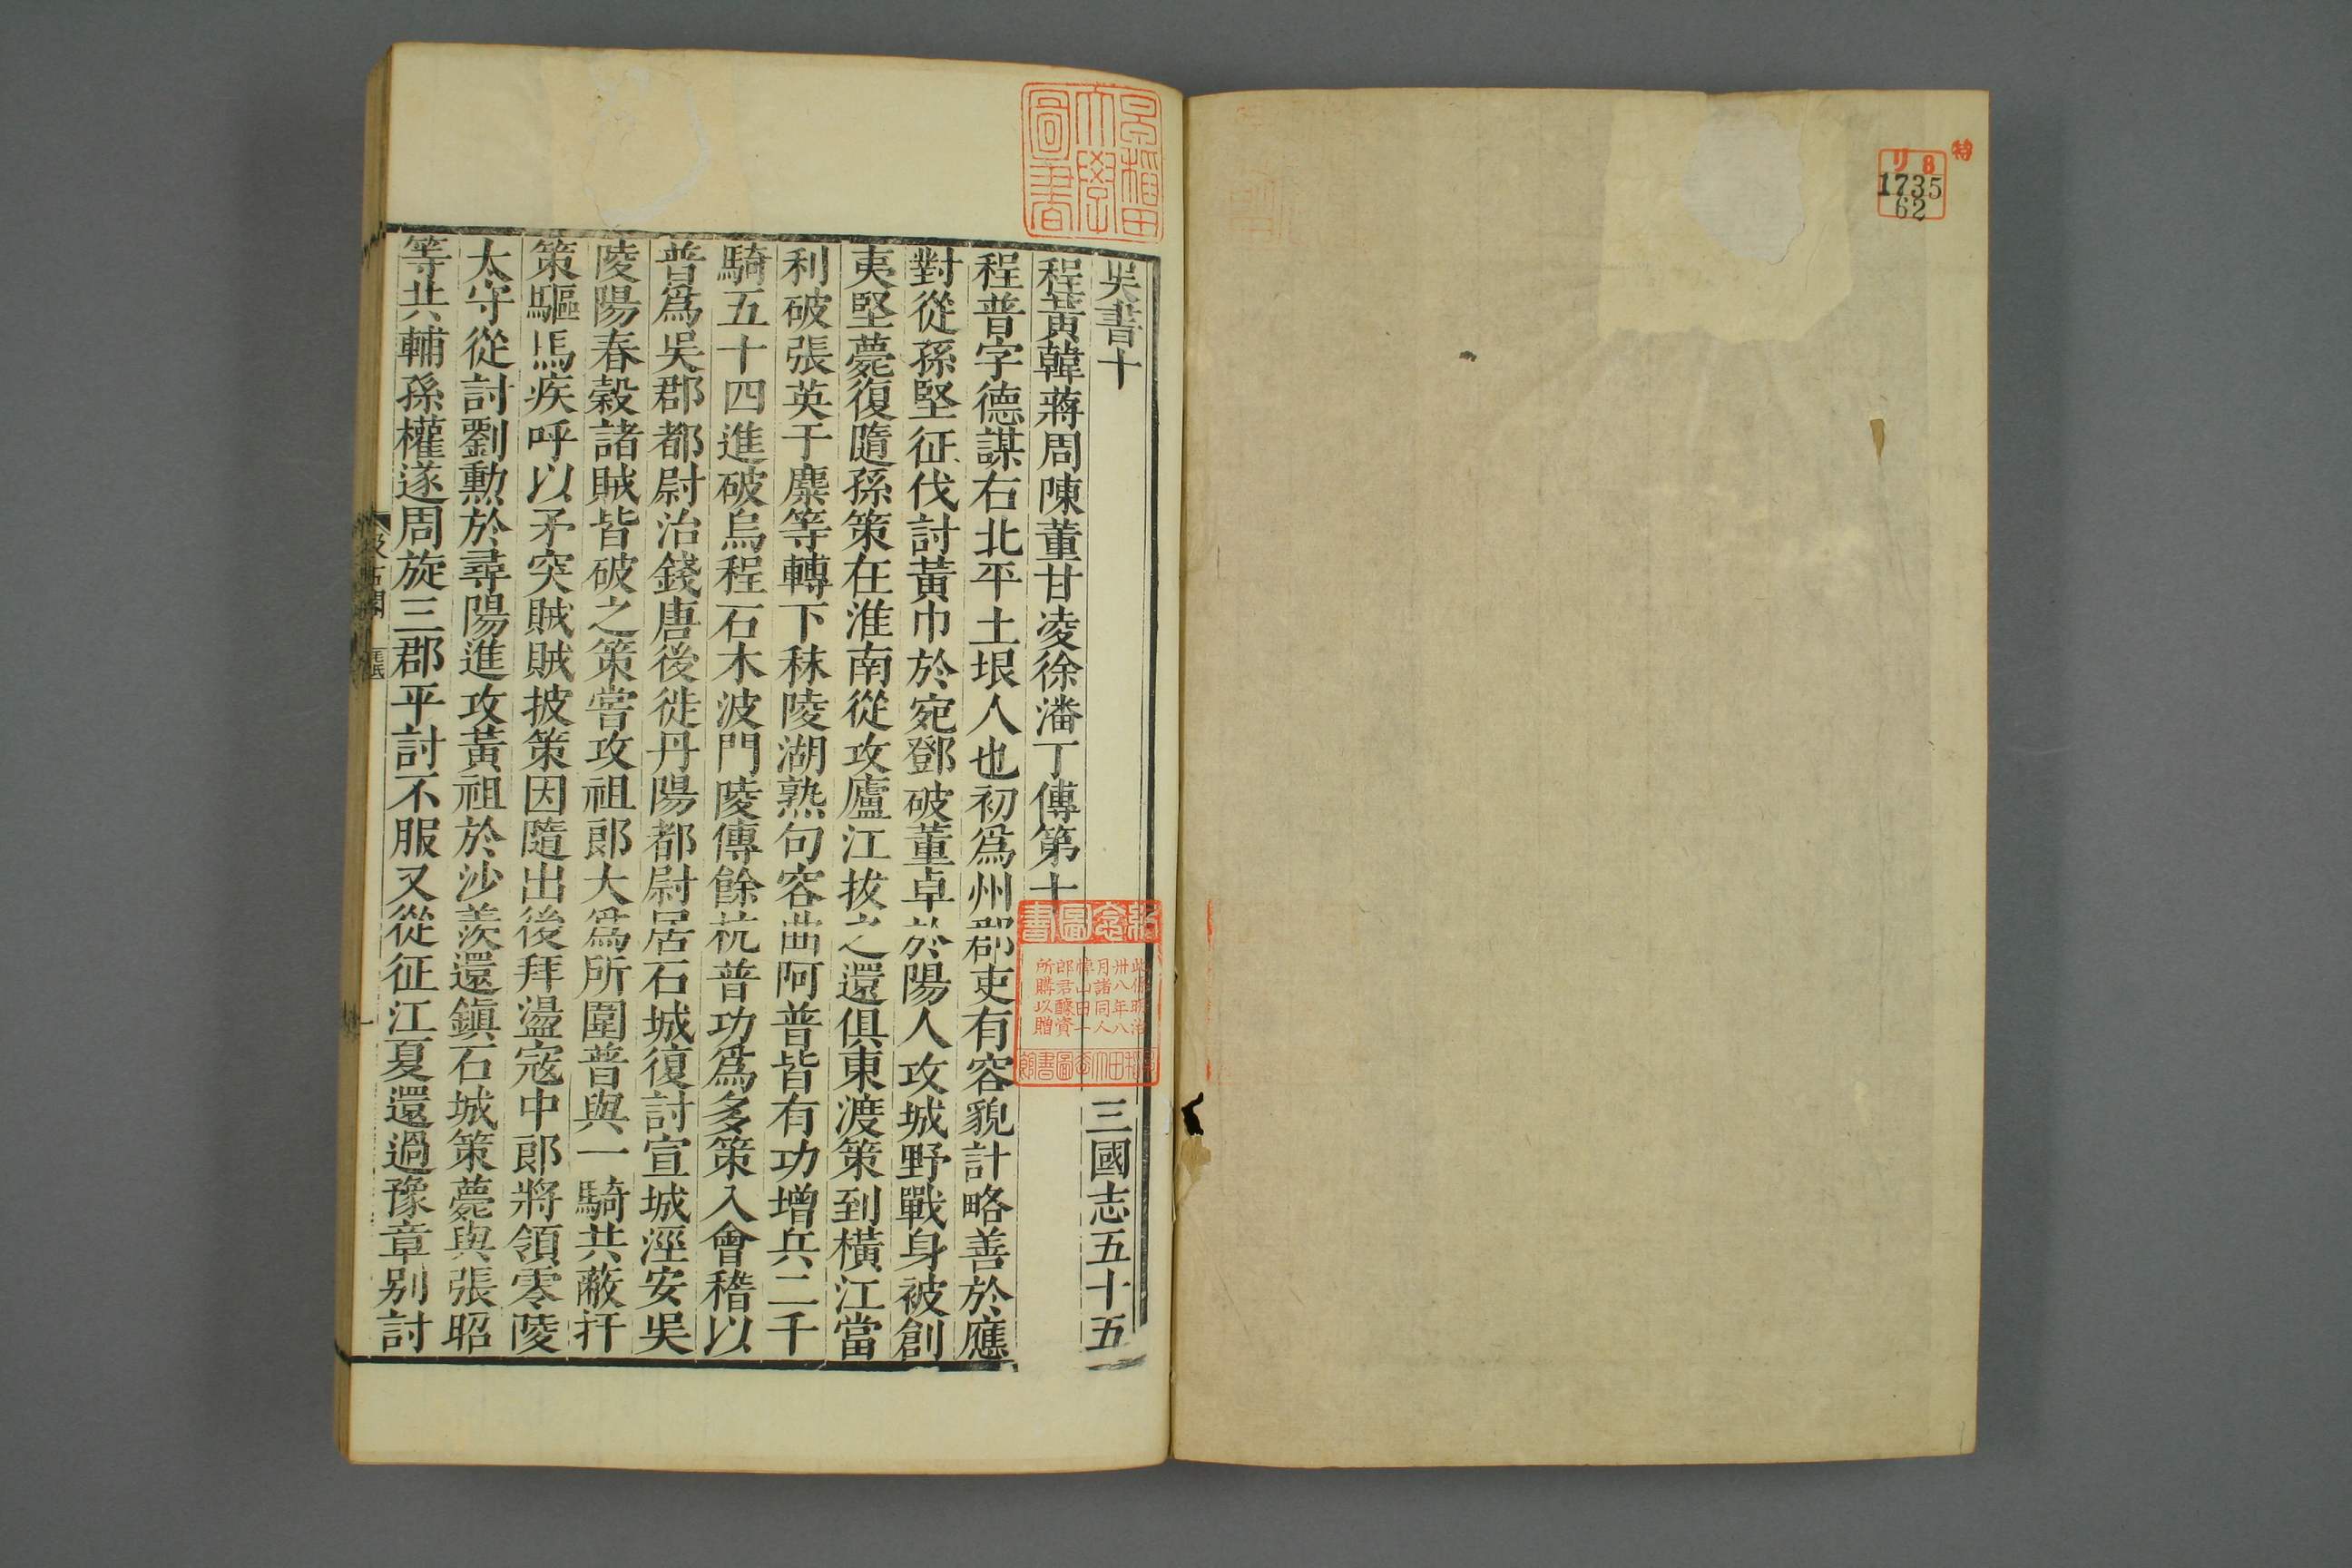 特
リ8
1735
62
早稲田
大學
圖書
吳書十
三國志五十五
程黃韓蔣周陳董甘凌徐潘丁傳第十
程普字德謀右北平土垠人也初爲州郡吏有容貌計略善於應
對從孫堅征伐討黃巾於宛鄧破董卓於陽人攻城野戰身被創
夷堅薨復隨孫策在淮南從攻廬江拔之還俱東渡策到橫江當
利破張英于麋等轉下秣陵湖熟句容曲阿普皆有功增兵二千
騎五十四進破烏程石木波門陵傳餘杭普功爲多策入會稽以
普爲吳郡都尉治錢唐後徙丹陽都尉居石城復討宣城涇安吳
陵陽春穀諸賊皆破之策嘗攻祖郎大爲所圍普與一騎共蔽扞
策驅馬疾呼以矛突賊賊披策因隨出後拜盪寇中郎將領零陵
太守從討劉勳於尋陽進攻黃祖於沙羨還鎮石城策薨與張昭
等共輔孫權遂周旋三郡平討不服又從征江夏還過豫章別討
紀念圖書
卅八年八
月諸同人
郎君醵資
所購以贈